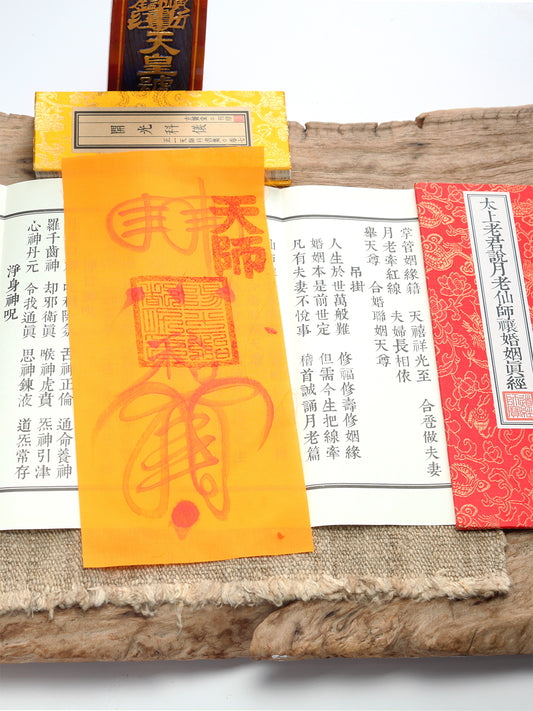 天皇
開光科儀
天師
太上老君說月老仙師禳婚姻眞經
掌管姻緣籍 天禧祥光至 合巹做夫妻
月老牽紅線 夫婦長相依
舉天尊 合婚聯姻天尊
吊掛
人生於世萬般難 修福修壽修姻緣
婚姻本是前世定 但需今生把線牽
凡有夫妻不悅事 稽首誠誦月老篇
舌神正倫 通命養神
羅千齒神 却邪衛眞 喉神虎賁 炁神引津
心神丹元 令我通眞 思神鍊液 道炁常存
淨身神呪